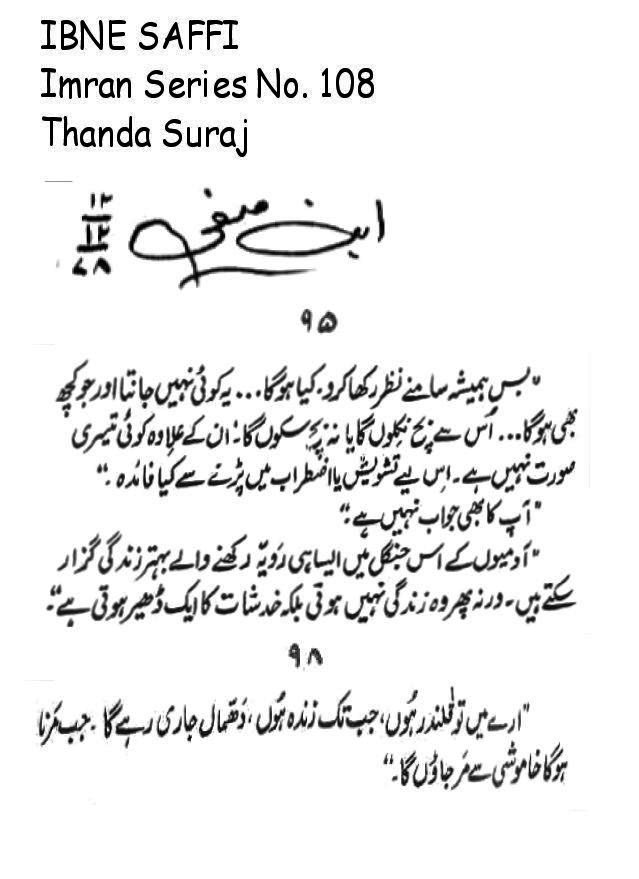 IBNE SAFFI
Imran Series No. 108
Thanda Suraj
ابن صفی
۱۲
۱۲
۷۸
۹۵
"بس ہمیشہ سامنے نظر رکھا کرو. کیا ہوگا... یہ کوئی نہیں جانتا اور جو کچھ
بھی ہوگا... اُس سے بچ نکلوں گا یا نہ بچ سکوں گا. ان کے علاوہ کوئی تیسری
صورت نہیں ہے۔ اس لیے تشویش یا اضطراب میں پڑنے سے کیا فائدہ."
"آپ کا بھی جواب نہیں ہے."
"آدمیوں کے اس جنگل میں ایسا ہی رَویّہ رکھنے والے بہتر زندگی گزار
سکتے ہیں۔ ورنہ پھر وہ زندگی نہیں ہوتی بلکہ خدشات کا ایک ڈھیر ہوتی ہے."
۹۸
"ارے میں تو قلندر ہُوں، جب تک زندہ ہُوں، دَھمال جاری رہے گا. جب مَرنا
ہوگا خاموشی سے مَر جاؤں گا."